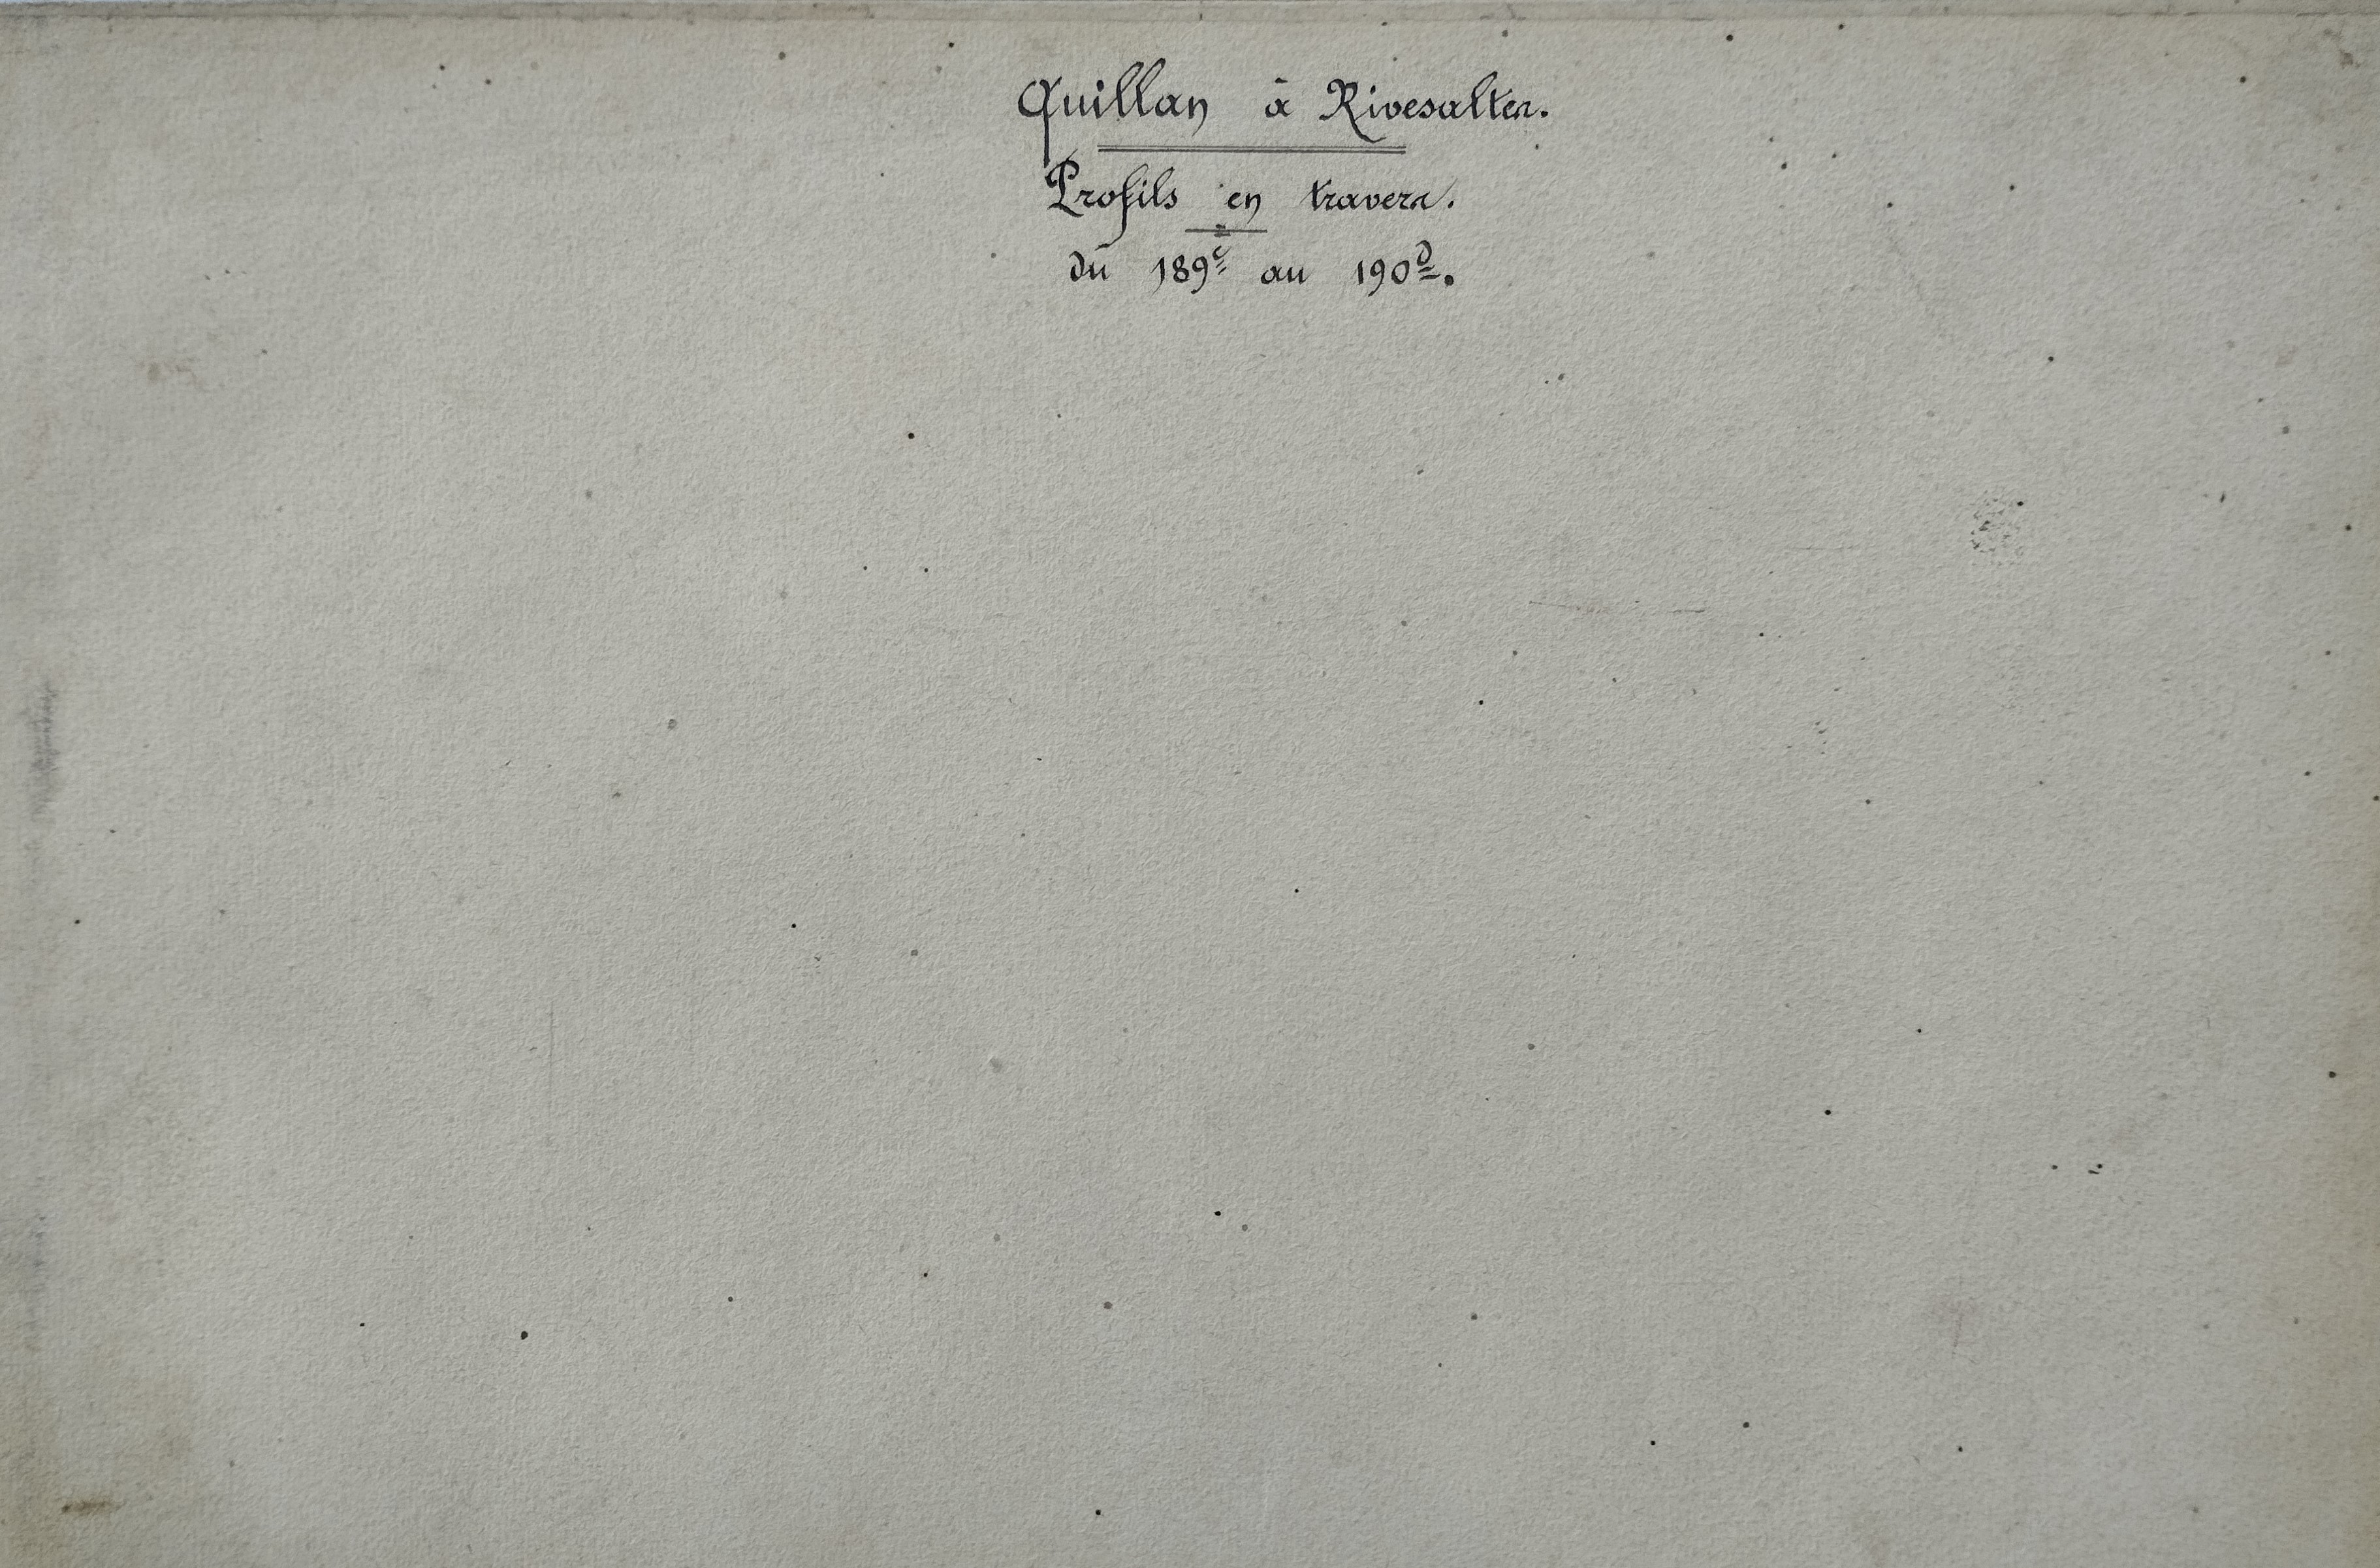 Quillan à Rivesaltes.
Profils en travers.
du 189ᶜ au 190ᴰ.